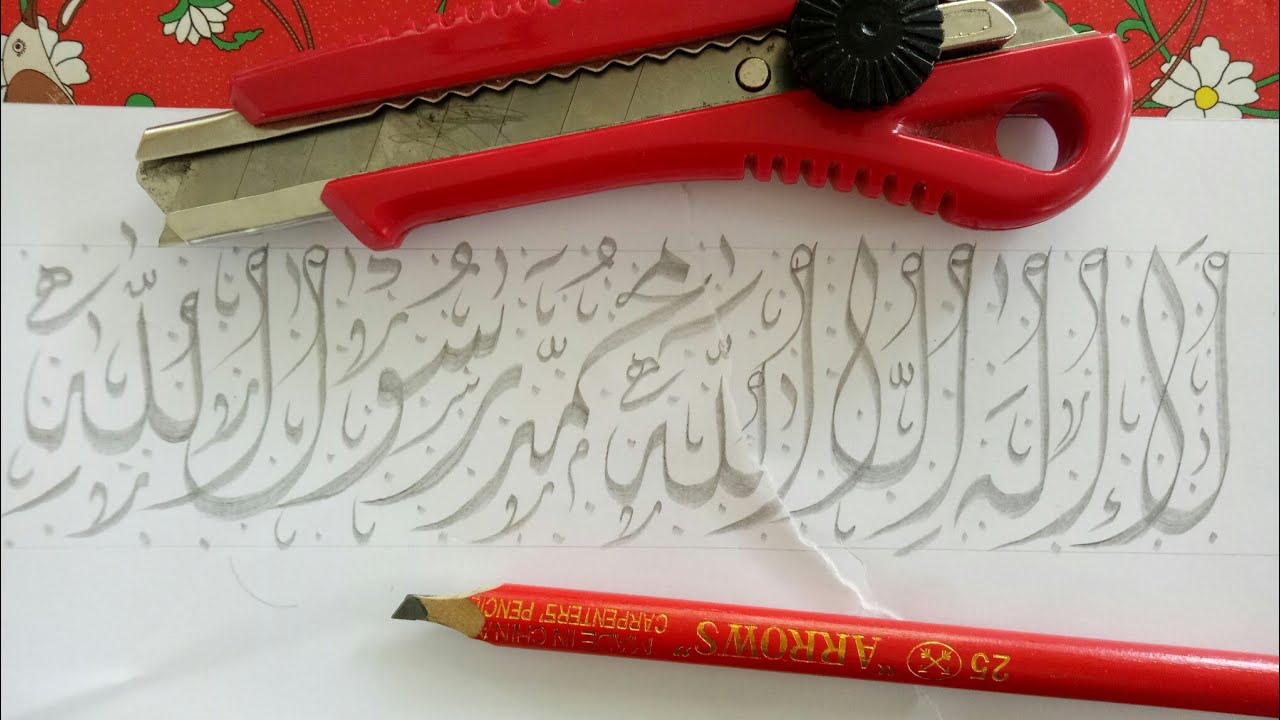 لا إله إلا الله محمد رسول الله
25 "ARROWS" MADE IN CHINA
CARPENTERS' PENCIL